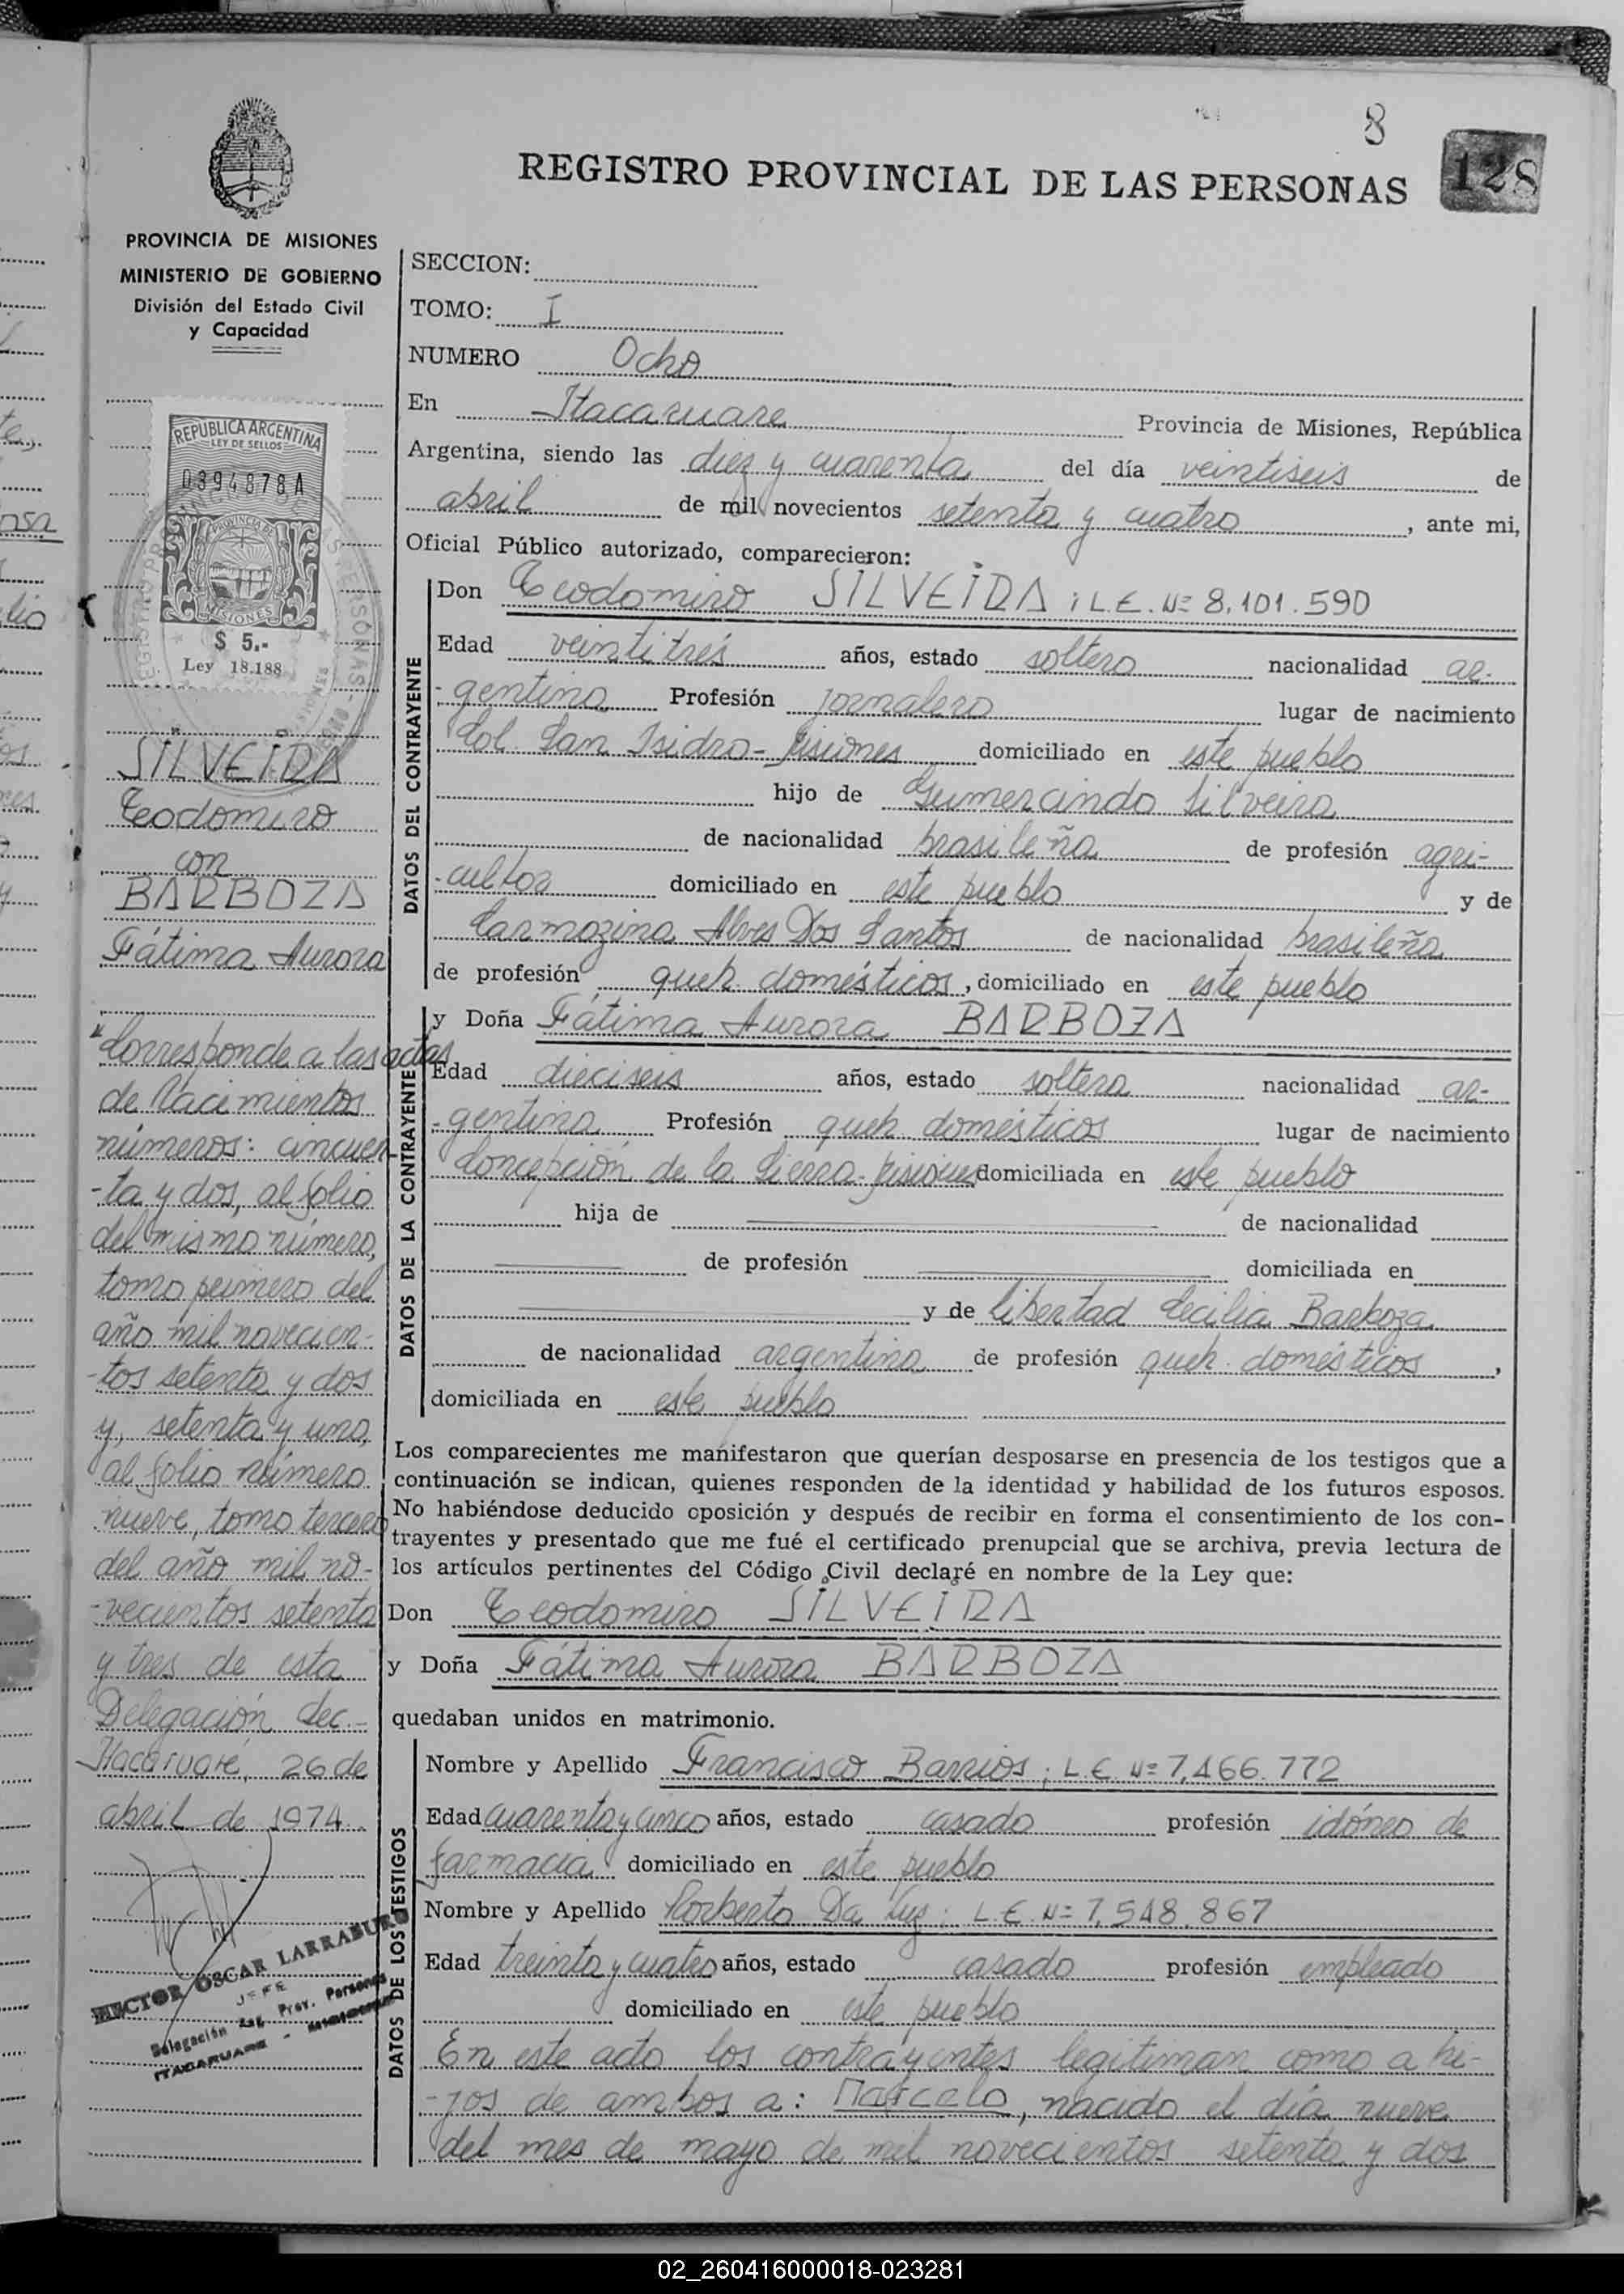 8
128
REGISTRO PROVINCIAL DE LAS PERSONAS
PROVINCIA DE MISIONES
MINISTERIO DE GOBIERNO
División del Estado Civil
y Capacidad
REPUBLICA ARGENTINA
LEY DE SELLOS
0394878A
PROVINCIA
MISIONES
$ 5.-
Ley 18.188
SILVEIRA
Teodomiro
con
BARBOZA
Fátima Aurora
Corresponde a las actas
de Nacimientos
números: cincuen-
-ta y dos, al folio
del mismo número,
tomo primero del
año mil novecien-
-tos setenta y dos
y, setenta y uno,
al folio número
nueve, tomo tercero
del año mil no-
-vecientos setenta
y tres de esta
Delegación Sec.-
Itacaruaré, 26 de
abril de 1974.
HECTOR OSCAR LARRABURO
JEFE
Delegación Reg. Prov. Personas
ITACARUARE -
SECCION:
TOMO: I
NUMERO Ocho
En Itacaruare Provincia de Misiones, República
Argentina, siendo las diez y cuarenta del día veintiseis de
abril de mil novecientos setenta y cuatro, ante mi,
Oficial Público autorizado, comparecieron:
DATOS DEL CONTRAYENTE
Don Teodomiro SILVEIRA; L.E. Nº 8.101.590
Edad veintitrés años, estado soltero nacionalidad ar-
-gentina Profesión jornalero lugar de nacimiento
Col. San Isidro-Misiones domiciliado en este pueblo
hijo de Gumercindo Silveira
de nacionalidad brasileña de profesión agri-
-cultor domiciliado en este pueblo y de
Carmozina Alves Dos Santos de nacionalidad brasileña
de profesión queh. domésticos, domiciliado en este pueblo
DATOS DE LA CONTRAYENTE
y Doña Fátima Aurora BARBOZA
Edad dieciseis años, estado soltera nacionalidad ar-
-gentina Profesión queh. domésticos lugar de nacimiento
Concepción de la Sierra-Misiones domiciliada en este pueblo
hija de de nacionalidad
de profesión domiciliada en
y de Libertad Cecilia Barboza
de nacionalidad argentina de profesión queh. domésticos,
domiciliada en este pueblo
Los comparecientes me manifestaron que querían desposarse en presencia de los testigos que a
continuación se indican, quienes responden de la identidad y habilidad de los futuros esposos.
No habiéndose deducido oposición y después de recibir en forma el consentimiento de los con-
trayentes y presentado que me fué el certificado prenupcial que se archiva, previa lectura de
los artículos pertinentes del Código Civil declaré en nombre de la Ley que:
Don Teodomiro SILVEIRA
y Doña Fátima Aurora BARBOZA
quedaban unidos en matrimonio.
DATOS DE LOS TESTIGOS
Nombre y Apellido Francisco Barrios; L.E. Nº 7.466.772
Edad cuarenta y cinco años, estado casado profesión idóneo de
farmacia domiciliado en este pueblo
Nombre y Apellido Norberto Da Luz; L.E. Nº 7.548.867
Edad treinta y cuatro años, estado casado profesión empleado
domiciliado en este pueblo
En este acto los contrayentes legitiman como a hi-
-jos de ambos a: Marcelo, nacido el día nueve
del mes de mayo de mil novecientos setenta y dos
02_260416000018-023281